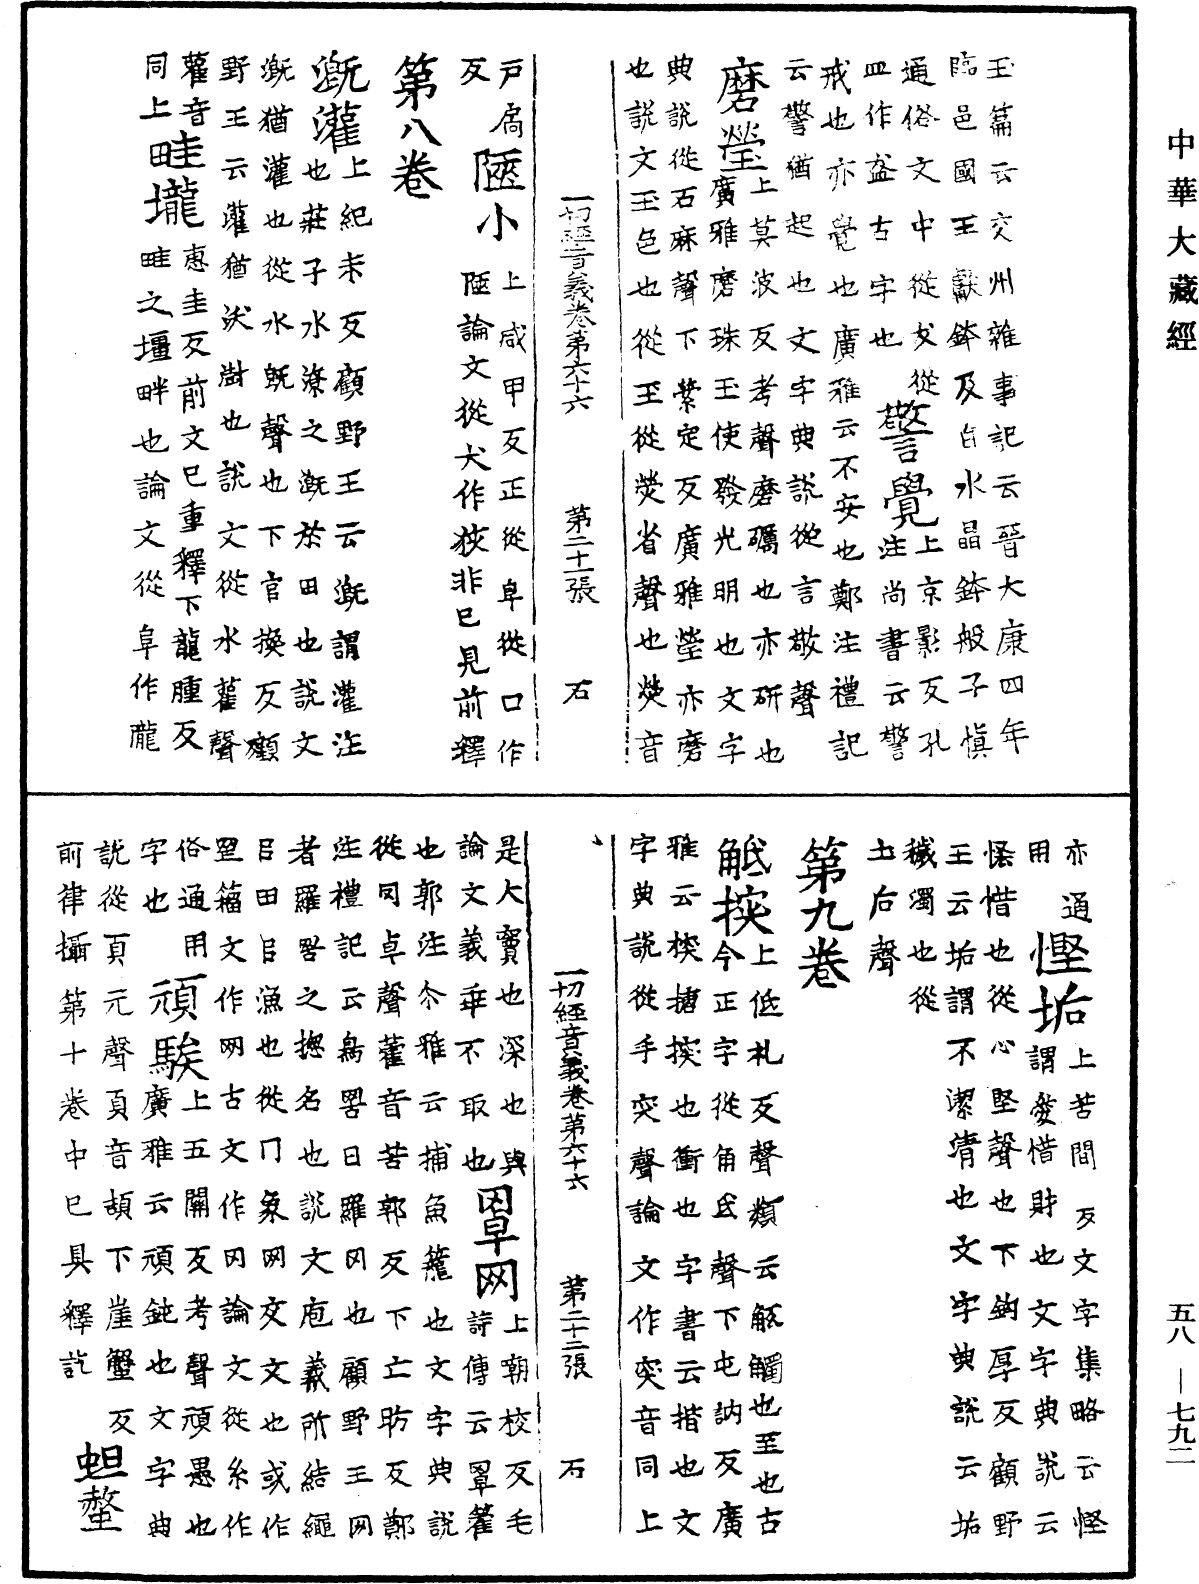 中華大藏經
玉篇云交州雜事記云晉大康四年
臨邑國王獻鉢及白水晶鉢般子慎
通俗文中從犮從
皿作盋古字也 警覺 上京影反孔注尚書云警
戒也亦覺也廣雅云不安也鄭注禮記
云警猶起也文字典說從言敬聲
磨瑩 上莫波反考聲磨礪也亦研也
廣雅磨珠玉使發光明也文字
典說從石麻聲下縈定反廣雅瑩亦磨
也說文玉色也從玉從熒省聲也熒音
一切經音義卷第六十六 第二十一張 石
戶扃反 陿小 上咸甲反正從阜從口作
陿論文從犬作狹非已見前釋
第八卷
漑灌 上紀未反顧野王云漑謂灌注
也莊子水潦之漑於田也說文
漑猶灌也從水旣聲也下官換反顧
野王云灌猶沃澍也說文從水雚聲
雚音同上 畦壠 惠圭反前文已重釋下龍腫反
畦之壃畔也論文從阜作隴
亦通用 慳垢 上苦間反文字集略云慳
謂愛惜財也文字典說云
恡惜也從心堅聲也下鉤厚反顧野
王云垢謂不潔清也文字典說云垢
穢濁也從
土后聲
第九卷
觝揬 上低札反聲類云觝觸也至也古
今正字從角氐聲下屯訥反廣
雅云揬搪揬也衝也字書云揩也文
字典說從手突聲論文作突音同上
一切經音義卷第六十六 第二十二張 石
是大寶也深也與
論文義乖不取也 罩网 上朝校反毛
詩傳云罩籗
也郭注尒雅云捕魚籠也文字典說
從网卓聲籗音苦郭反下亡昉反鄭
注禮記云鳥罟曰羅网也顧野王网
者羅罟之揔名也說文庖羲所結繩
㠯田㠯漁也從冂象网交文也或作
罔籀文作网古文作冈論文從糸作
俗通用 頑騃 上五關反考聲頑愚也
字也 廣雅云頑鈍也文字典
說從頁元聲頁音頡下崖蟹反
前律攝第十卷中已具釋訖 蛆螫
五八—七九二